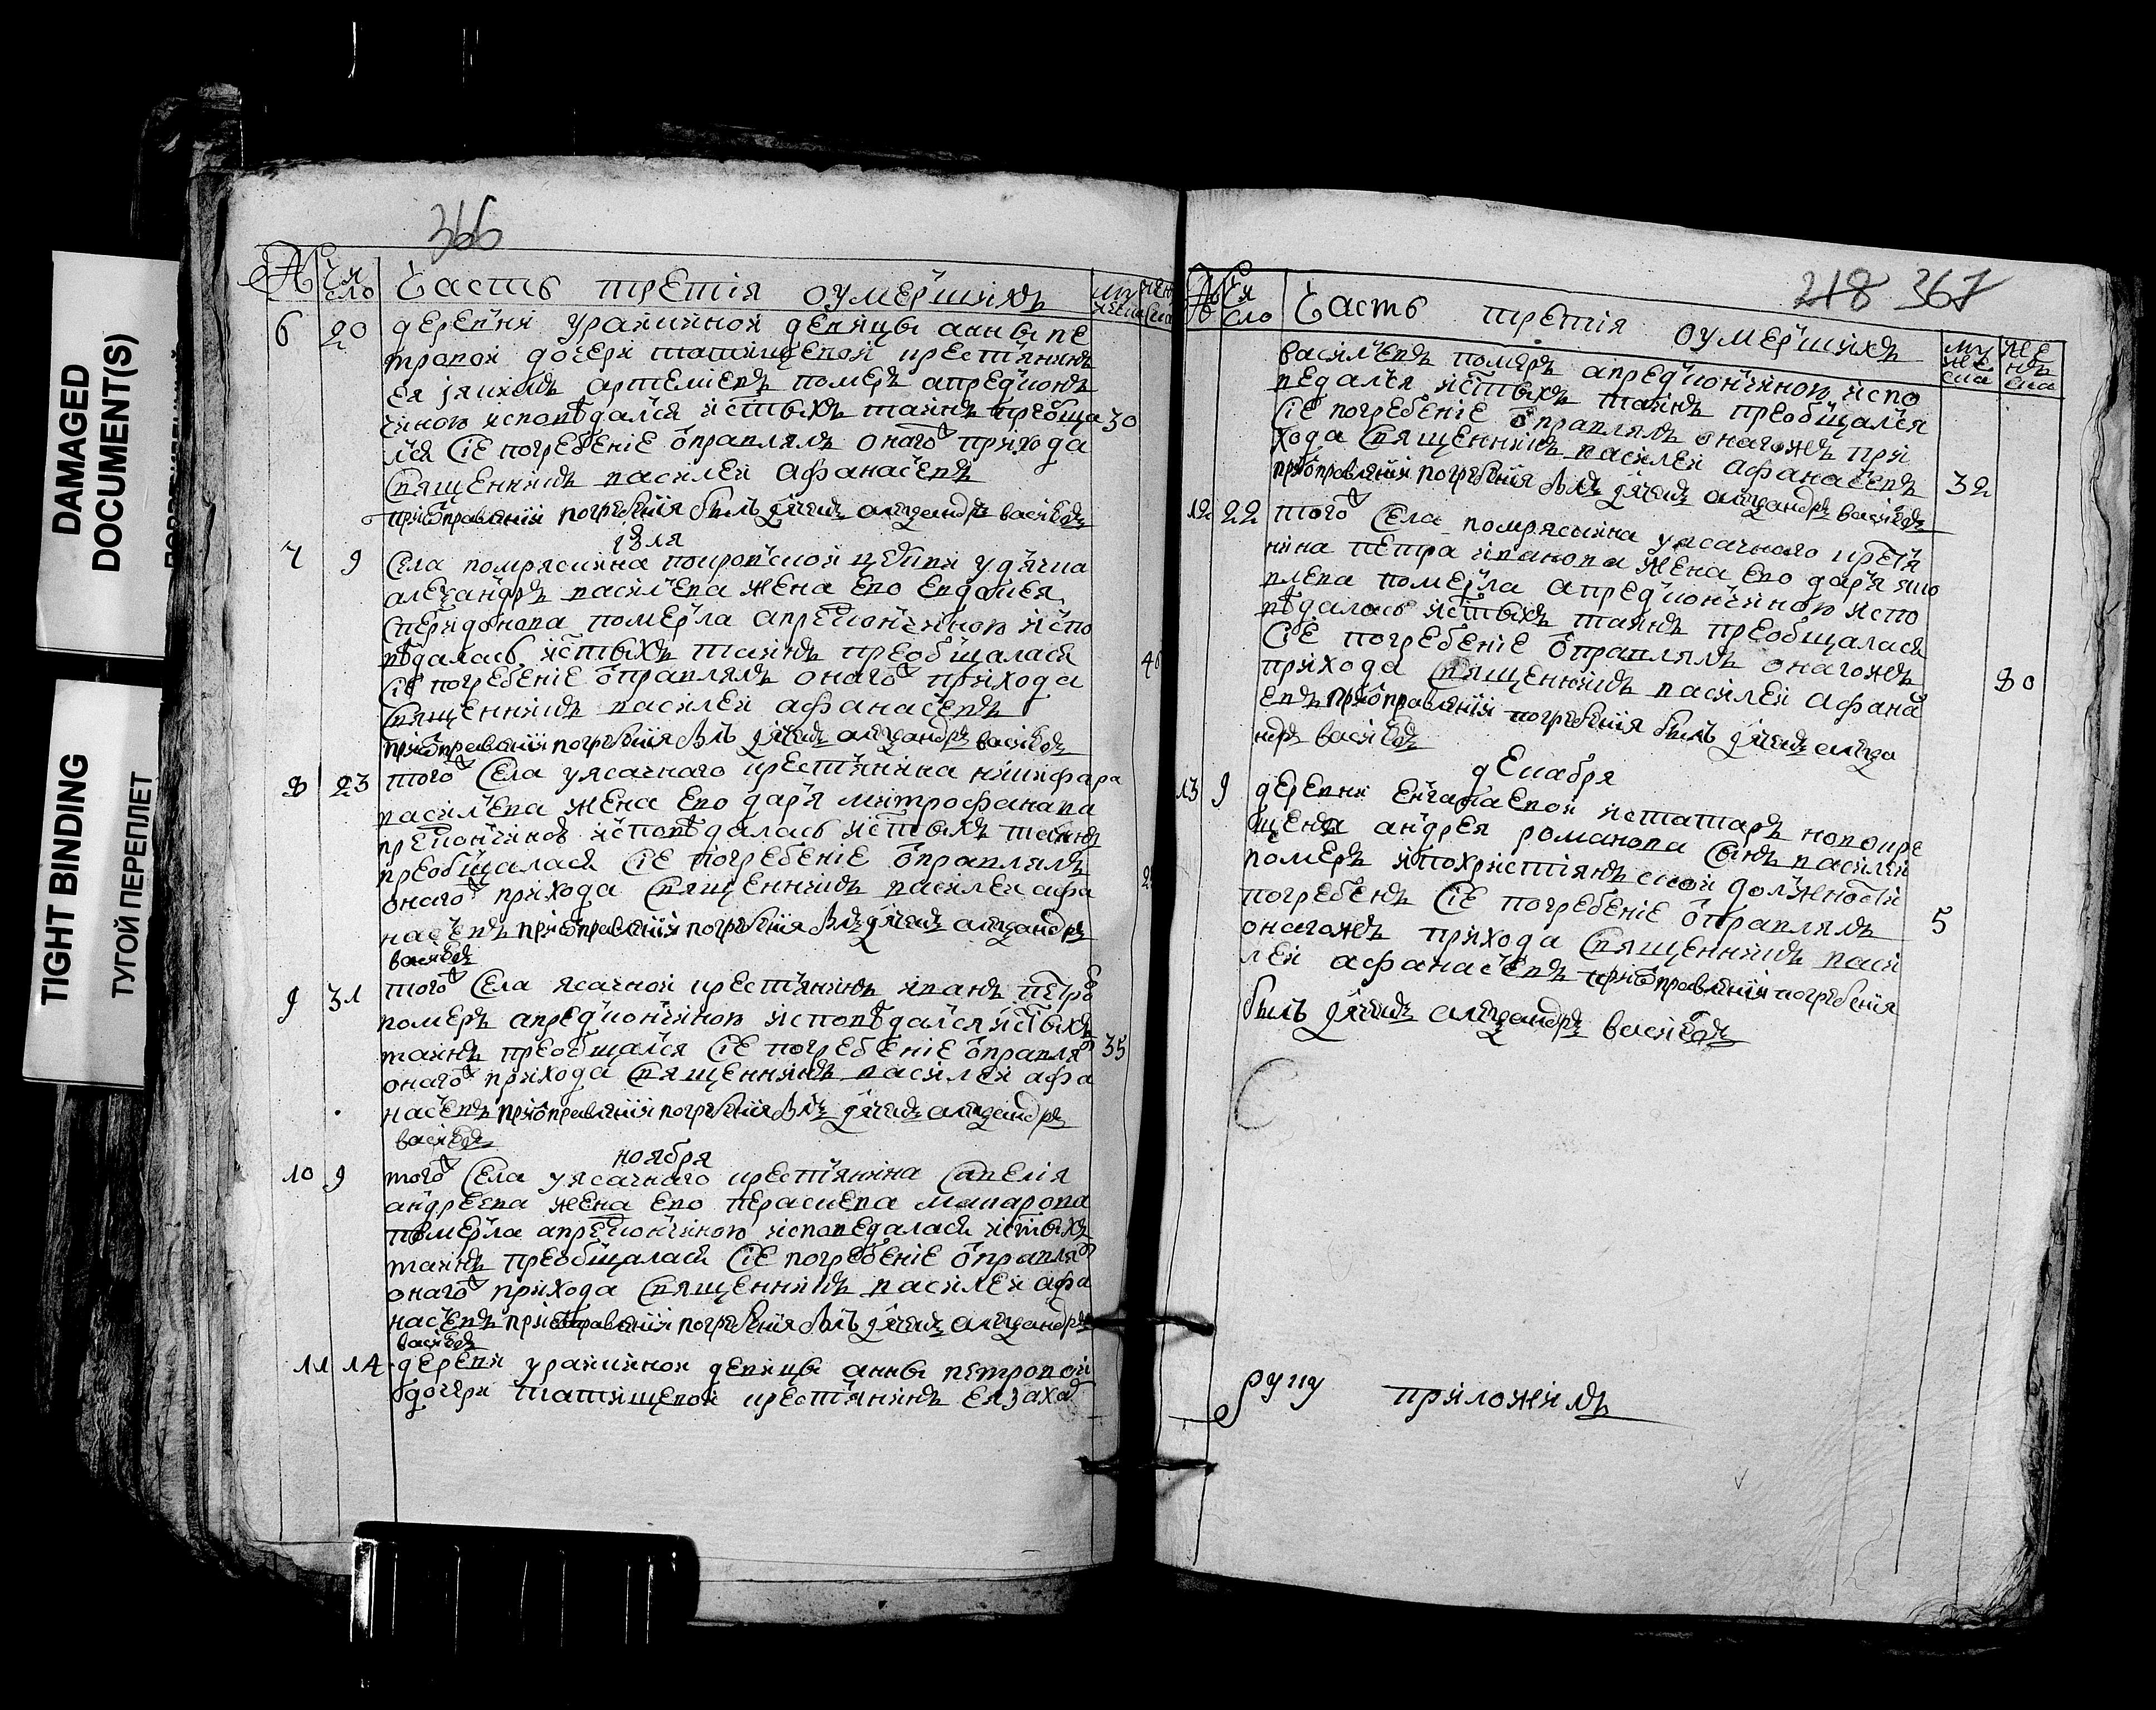 DAMAGED
DOCUMENT(S)
TIGHT BINDING
ТУГОЙ ПЕРЕПЛЕТ
366
№ Число Часть третiя оумершихъ мужеска
6 20 деревни девицы анны пе
тровой дочери татищевой крестьянинъ
ея якимъ артемiевъ померъ апредкон
чиною исповѣдался истыхъ таинъ преобща 30
лся сiе погребенiе оправлялъ онагож прихода
священникъ василеи афанасевъ
приотправлянiи погребения былъ дячекъ александръ василевъ
iюля
7 9 села покровской церкви удячка
александръ василева жена ево евдокея
спиридонова померла апредкончиною испо
ведалась истыхъ таинъ преобщалася
сiе погребенiе оправлялъ онагож прихода
священникъ василеи афанасевъ
приотправлянiи погребения былъ дячекъ александръ василевъ
8 23 тогож села уясачного крестьянина никифара
василева жена ево даря митрофанава
предкончиною исповѣдалась истыхъ таинъ
преобщалася сiе погребенiе оправлялъ
онагож прихода священникъ василеи афа
насевъ приотправлянiи погребения былъ дячекъ александръ
василевъ
9 31 тогож села ясачной крестьянинъ иванъ петро
померъ апредкончиною исповѣдался истыхъ
таинъ преобщался сiе погребенiе оправля 35
онагож прихода священникъ василеи афа
насевъ приотправлянiи погребения былъ дячекъ александръ
василевъ
ноября
10 9 тогож села уясачного крестьянина савелiя
андреева жена ево макарова
померла апредкончиною исповедалася истыхъ
таинъ преобщалася сiе погребенiе оправля
онагож прихода священникъ василеи афа
насевъ приотправлянiи погребения былъ дячекъ александръ
василевъ
11 14 деревни девицы анны петровой
дочери татищевой крестьянинъ ея захар
218 367
№ Число Часть третiя оумершихъ мужеска женска
василевъ померъ апредкончиною испо
ведался истыхъ таинъ преобщался
сiе погребенiе оправлялъ онагожъ при
хода священникъ василеи афанасевъ 32
приотправлянiи погребения былъ дячекъ александръ василевъ
12 22 тогож села уясачного крестья
нина петра иванова жена ево даря яко
влева померла апредкончиною испо
вѣдалась истыхъ таинъ преобщалася
сiе погребенiе оправлялъ онагожъ
прихода священникъ василеи афанас 80
евъ приотправлянiи погребения былъ дячекъ алекса
ндръ василевъ
декабря
13 9 деревни истатаръ новокре
щенъ андрея романова сынъ василеи
померъ ипохристиянской должности
погребенъ сiе погребенiе оправлялъ 5
онагожъ прихода священникъ васи
леи афанасевъ приотправлянiи погребения
былъ дячекъ александръ василевъ
руку приложилъ